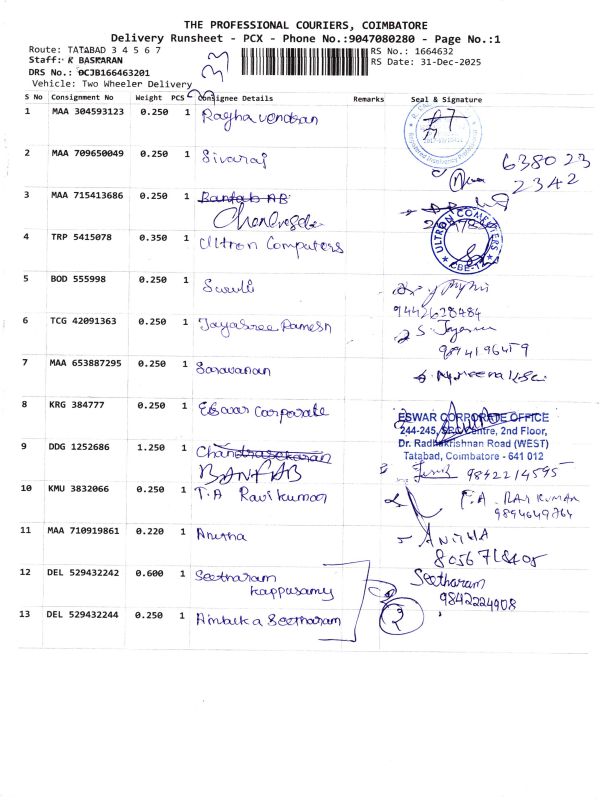 THE PROFESSIONAL COURIERS, COIMBATORE
Delivery Runsheet - PCX - Phone No.:9047080280 - Page No.:1
Route: TATABAD 3 4 5 6 7
RS No.: 1664632
Staff: R BASKARAN
RS Date: 31-Dec-2025
DRS No.: OCJB166463201
Vehicle: Two Wheeler Delivery
33
S No Consignment No Weight PCS Consignee Details Remarks Seal & Signature
1 MAA 304593123 0.250 1 Raghavendran
2 MAA 709650049 0.250 1 Sivaraj
638023
2342
3 MAA 715413686 0.250 1 Bantab AB
4 TRP 5415078 0.350 1 Ultron Computers
ULTRON COMPUTERS
CBE-12
5 BOD 555998 0.250 1
9442638484
6 TCG 42091363 0.250 1 Jayasree Ramesh
9894196459
7 MAA 653887295 0.250 1 Saravanan
8 KRG 384777 0.250 1 Eswar Corporate
ESWAR CORPORATE OFFICE
244-245, Centre, 2nd Floor,
Dr. Radhakrishnan Road (WEST)
Tatabad, Coimbatore - 641 012
9 DDG 1252686 1.250 1 Chandrasekaran
BANTAB
9842214595
10 KMU 3832066 0.250 1 T.A Ravikumar
T.A. RAVI KUMAR
9894649764
11 MAA 710919861 0.220 1 Anitha
ANITHA
8056718405
12 DEL 529432242 0.600 1 Seetharam
Kappusamy
Seetharam
9842224908
13 DEL 529432244 0.250 1 Ambika Seetharam
2